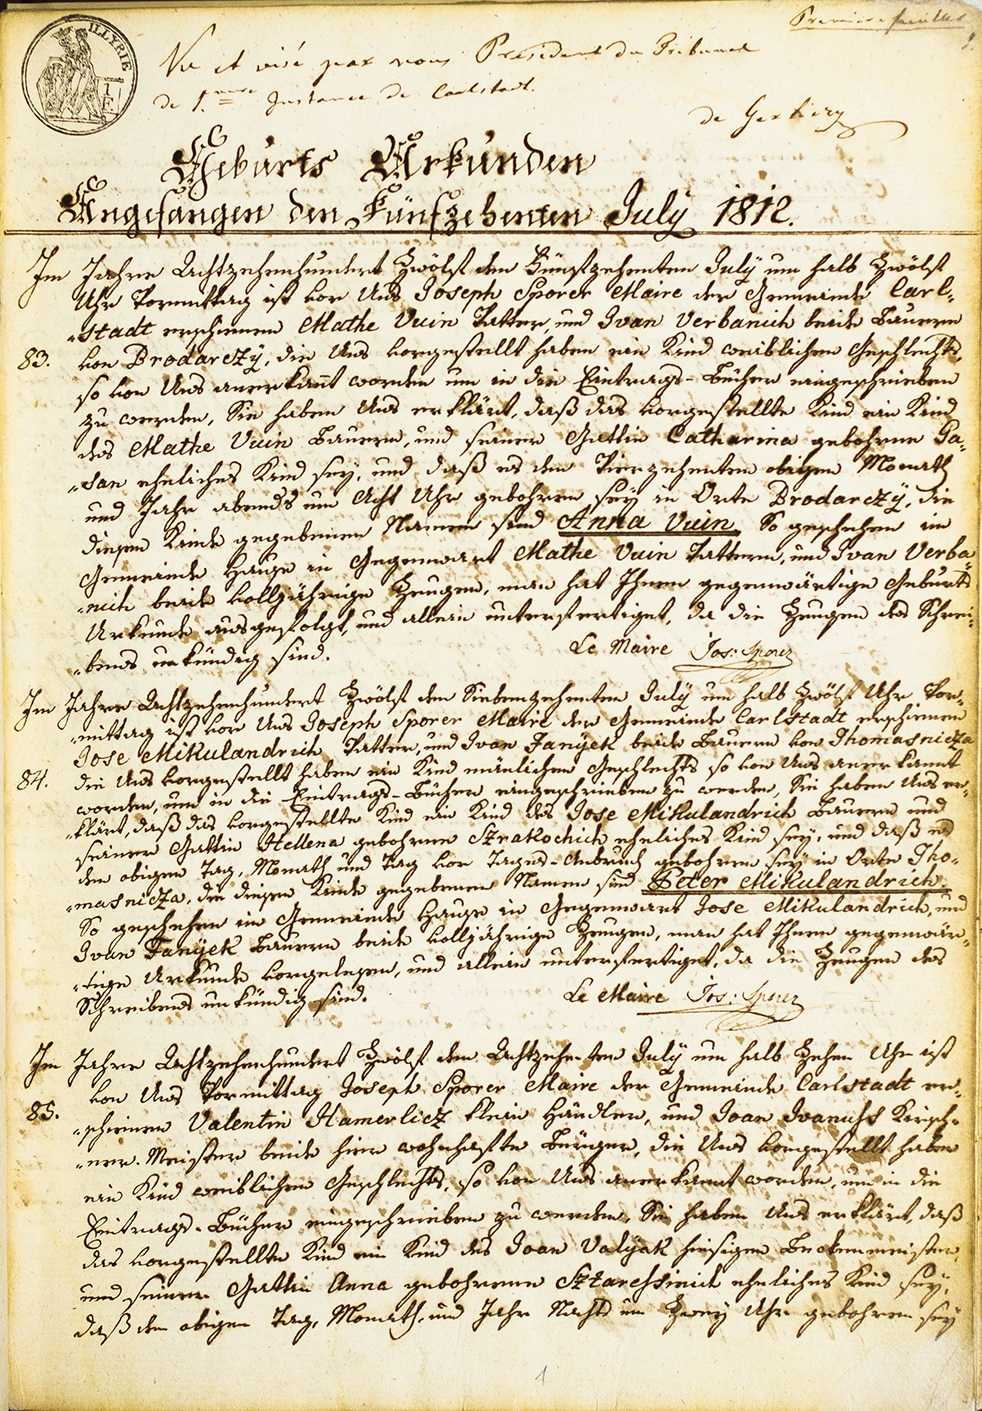 Premiere feuillet
1.
ILLYRIE
1 F.
Vu et visé par nous Président du Tribunal
de 1.ere Instance de Carlstadt.
Geburts Urkunden
Angefangen den Fünfzehenten July 1812.
Im Jahre Achtzehenhundert Zwölf den Fünfzehenten July um halb Zwölf
Uhr Vormittag ist vor Uns Joseph Sporer Maire der Gemeinde Carl-
-stadt erschienen Mathe Vuin Vatter, und Ivan Verbanich beide Bauern
83. von Brodarczÿ, die Uns vorgestellt haben ein Kind weiblichen Geschlechts,
so von Uns anerkant worden um in die Eintrags-Bücher eingeschrieben
zu werden, Sie haben Uns erklärt, daß das vorgestellte Kind ein Kind
des Mathe Vuin Bauern, und seiner Gattin Catharina gebohrne Ga-
-san eheliches Kind sey, und daß es den Vierzehenten obigen Monath
und Jahr abends um Acht Uhr gebohren sey in Orte Brodarczÿ, die
diesem Kinde gegebenen Namen sind Anna Vuin. So geschehen im
Gemeinde Hause in Gegenwart Mathe Vuin Vattern, und Ivan Verba-
-nich beide volljährige Zeugen, man hat Ihnen gegenwärtige Geburts
Urkunde ausgefolgt, und allein unterfertiget, da die Zeugen des Schrei-
-bens unkündig sind. Le Maire Jos: Sporer
Im Jahre Achtzehenhundert Zwölf den Siebenzehenten July um halb Zwölf Uhr Vor-
-mittag ist vor Uns Joseph Sporer Maire der Gemeinde Carlstadt erschienen
Jose Mikulandrich Vatter, und Ivan Fanÿek beide Bauern von Thomasnicza
84. die Uns vorgestellt haben ein Kind mänlichen Geschlechts so von Uns anerkannt
worden, um in die Eintrags-Bücher eingeschrieben zu werden, Sie haben Uns er-
-klärt, daß das vorgestellte Kind ein Kind des Jose Mikulandrich Bauern und
seiner Gattin Hellena gebohrne Sztrakochich eheliches Kind sey, und daß es
den obigen Tag, Monath und Tag vor Tages-Anbruch gebohren sey in Orte Tho-
-masnicza, die diesem Kinde gegebenen Namen sind Peter Mikulandrich.
So geschehen im Gemeinde Hause in Gegenwart Jose Mikulandrich, und
Ivan Fanÿek Bauern beide volljährige Zeugen, man hat Ihnen gegenwär-
-tige Urkunde vorgelesen, und allein unterfertiget, da die Zeugen des
Schreibens unkündig sind. Le Maire Jos: Sporer
Im Jahre Achtzehenhundert Zwölf den Achtzehenten July um halb Zehen Uhr ist
von Uns Vormittag Joseph Sporer Maire der Gemeinde Carlstadt er-
85. -schienen Valentin Hamerlicz klein Händler, und Ivan Ivanuss Kirsch-
-ner-Meister beide hier wohnhafte Bürger, die Uns vorgestellt haben
ein Kind weiblichen Geschlechts, so von Uns anerkannt worden, um in die
Eintrags-Bücher eingeschrieben zu werden, Sie haben Uns erklärt, daß
das vorgestellte Kind ein Kind des Ivan Valÿak hiesigen Beckenmeister,
und seiner Gattin Anna gebohrne Sztaressinich eheliches Kind sey,
daß den obigen Tag, Monath, und Jahr Nachts um Zwey Uhr gebohren sey
1